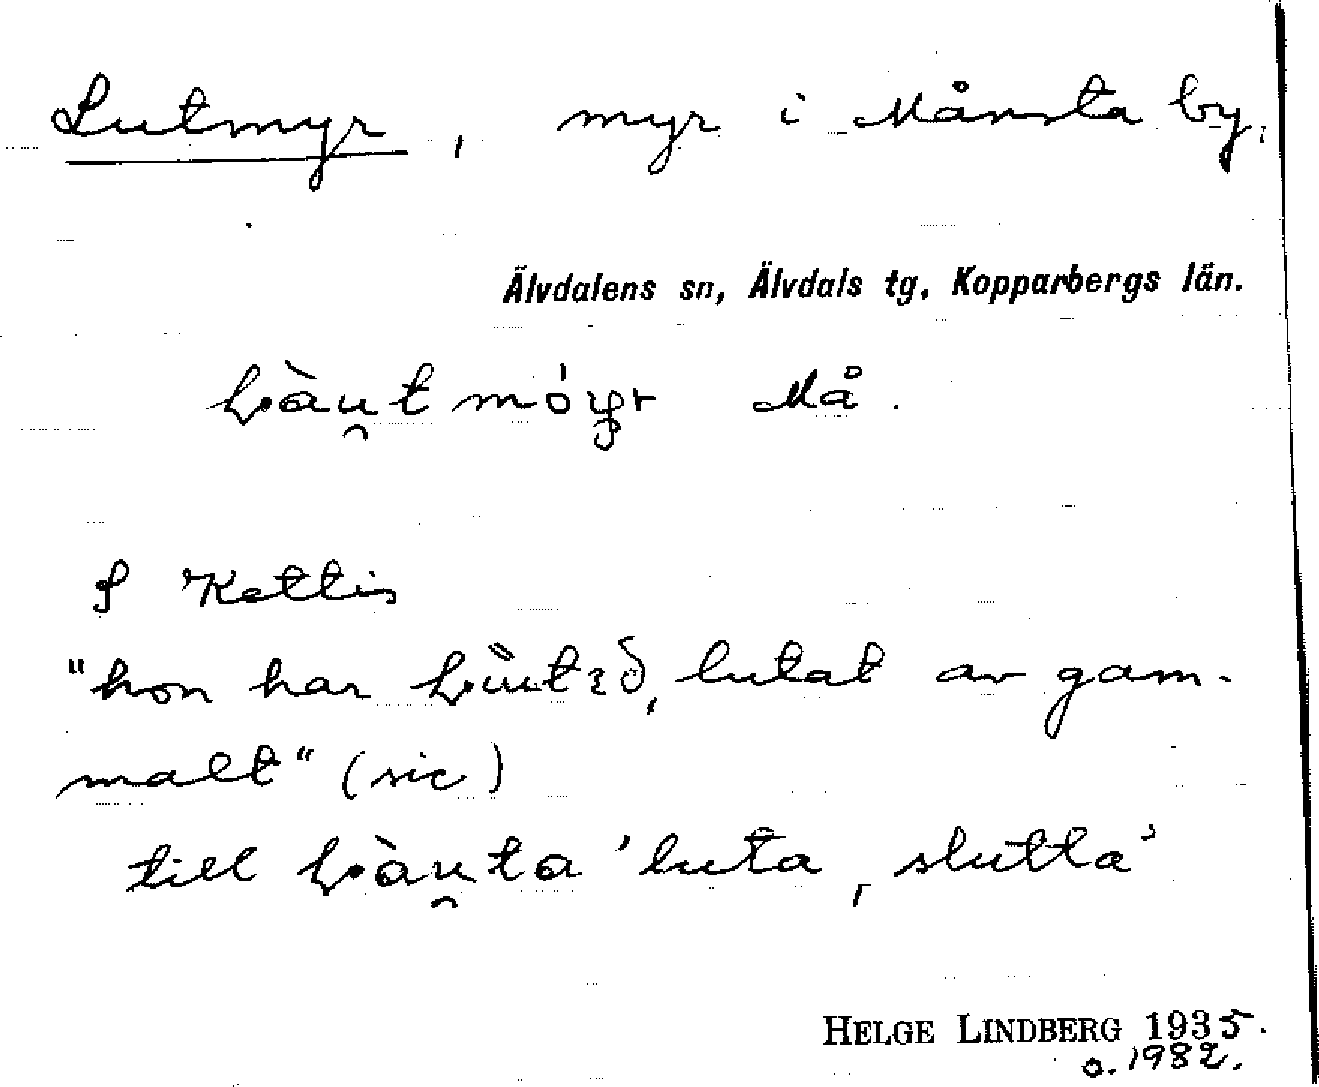 Lutmyr, myr i Månsta by.
Älvdalens sn, Älvdals tg, Kopparbergs län.
Må.
S Kettis
"hon har lutat av gam-
malt" (sic)
till 'luta, slutta'
HELGE LINDBERG 1935.
o. 1982.